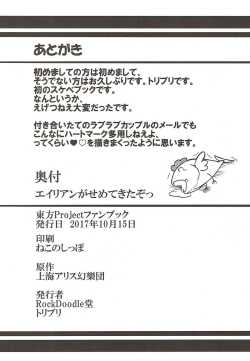 あとがき
初めましての方は初めまして、
そうでない方はお久しぶりです。トリプリです。
初のスケベブックです。
なんというか、
えげつねえ大変だったです。
付き合いたてのラブラブカップルのメールでも
こんなにハートマーク多用しねえよ、
ってくらい♥♡を描きまくったように思います。
奥付
エイリアンがせめてきたぞっ
東方Projectファンブック
発行日 2017年10月15日
印刷
ねこのしっぽ
原作
上海アリス幻樂団
発行者
RockDoodle堂
トリプリ